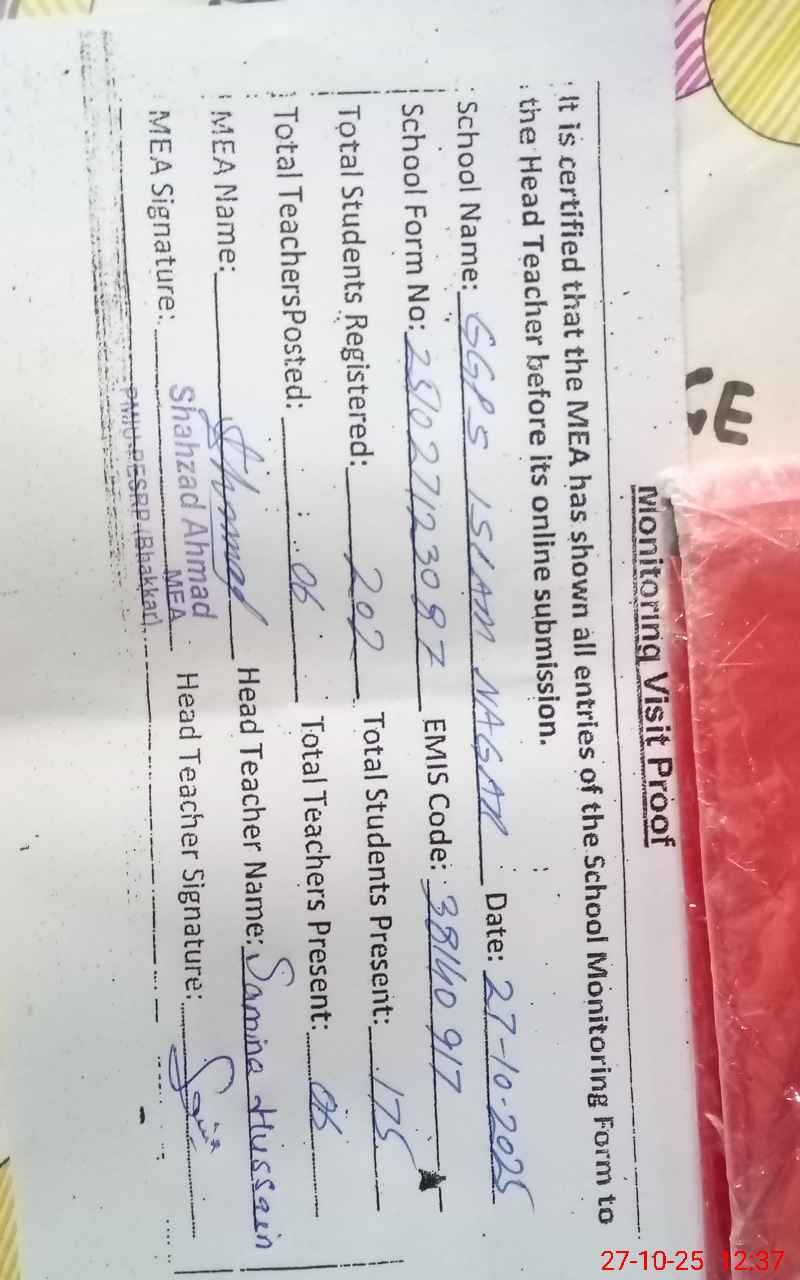 Monitoring Visit Proof
It is certified that the MEA has shown all entries of the School Monitoring Form to
the Head Teacher before its online submission.
School Name: GGPS ISLAM NAGAR Date: 27-10-2025
School Form No: EMIS Code: 38140917
Total Students Registered: 202 Total Students Present: 175
Total TeachersPosted: 06 Total Teachers Present: 06
MEA Name: Head Teacher Name: Samina Hussain
MEA Signature: Shahzad Ahmad Head Teacher Signature:
MEA
PMIU-PESRP (Bhakkar)
27-10-25 12:37